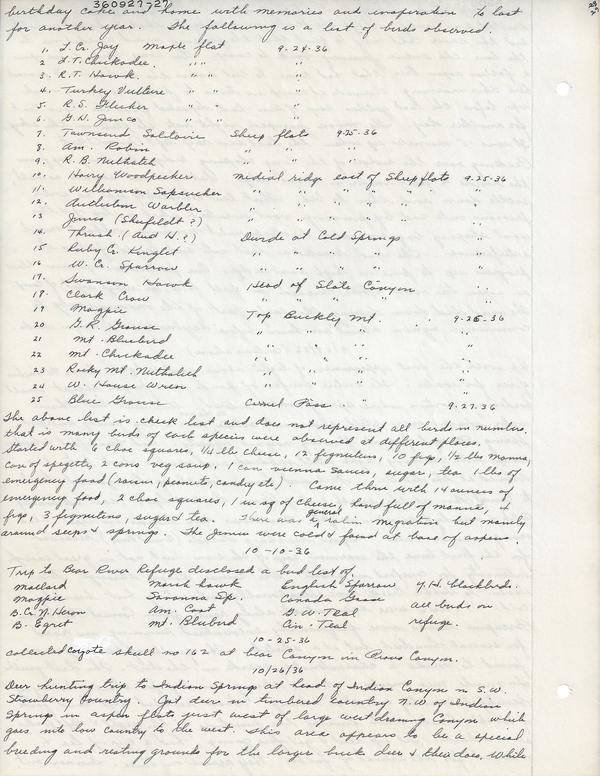 360927727
birthday cake and home with memories and inspiration to last
for another year. The following is a list of birds observed.
1. L. Cr. Jay Maple flat 9-24-36
2 L.T. Chickadee. " " "
3. R.T. Hawk. " " "
4. Turkey Vulture " " "
5. R.S. Flicker " " "
6. G.H. Junco " " "
7. Townsend Solitaire Sheep flats 9-25-36
8. Am. Robin " " "
9. R.B. Nuthatch " " "
10. Hairy Woodpecker Medial ridge east of Sheep flats 9-25-36
11. Williamson Sapsucker " " " " "
12. Audubon Warbler " " " " "
13 Junco (Shufeldt?) " " " " "
14. Thrush (Aud H.?) Divide at Cold Springs "
15 Ruby Cr. Kinglet " " " "
16 W. Cr. Sparrow " " " "
17. Swanson Hawk Head of Slate Canyon "
18. Clark Crow " " " "
19 Magpie Top Buckley Mt. 9-26-36
20 G.R. Grouse " " " "
21 Mt. Bluebird " " " "
22 Mt. Chickadee " " " "
23 Rocky Mt. Nuthatch " " " "
24 W. House Wren " " " "
25 Blue Grouse Camel Pass " 9-27-36
The above list is check list and does not represent all birds in numbers.
that is many birds of each species were observed at different places.
Started with 6 choc squares, 1/4 lbs cheese, 12 fignutins, 10 figs, 1/2 lbs manna,
can of spagetti, 2 cans veg soup, 1 can vienna saucs, sugar, tea 1 lbs of
emergency food (raisins, peanuts, candy etc). Came thru with 14 ounces of
emergency food, 2 choc squares, 1 in sq of cheese, hand full of manna, 4
figs, 3 fignutins, sugar & tea. There was a general robin migration but mainly
around seeps & springs. The Juncos were cold & found at base of aspens.
10-10-36
Trip to Bear River Refuge disclosed a bird list of,
Mallard Marsh hawk English Sparrow Y.H. blackbirds.
Magpie Savanna Sp. Canada Geese all birds on
B.Cr.N. Heron Am. Coot G.W. Teal refuge.
B. Egret Mt. Bluebird Cin. Teal
10-25-36
collected coyote skull no 162 at bear Canyon in Provo Canyon.
10/26/36
Deer hunting trip to Indian Springs at head of Indian Canyon in S.W.
Strawberry Country. Got deer in timbered country N.W of Indian
Springs in aspen flats just west of large west draining Canyon which
goes into low country to the west. This area appears to be a special
breeding and resting grounds for the larger buck deer & the does, while